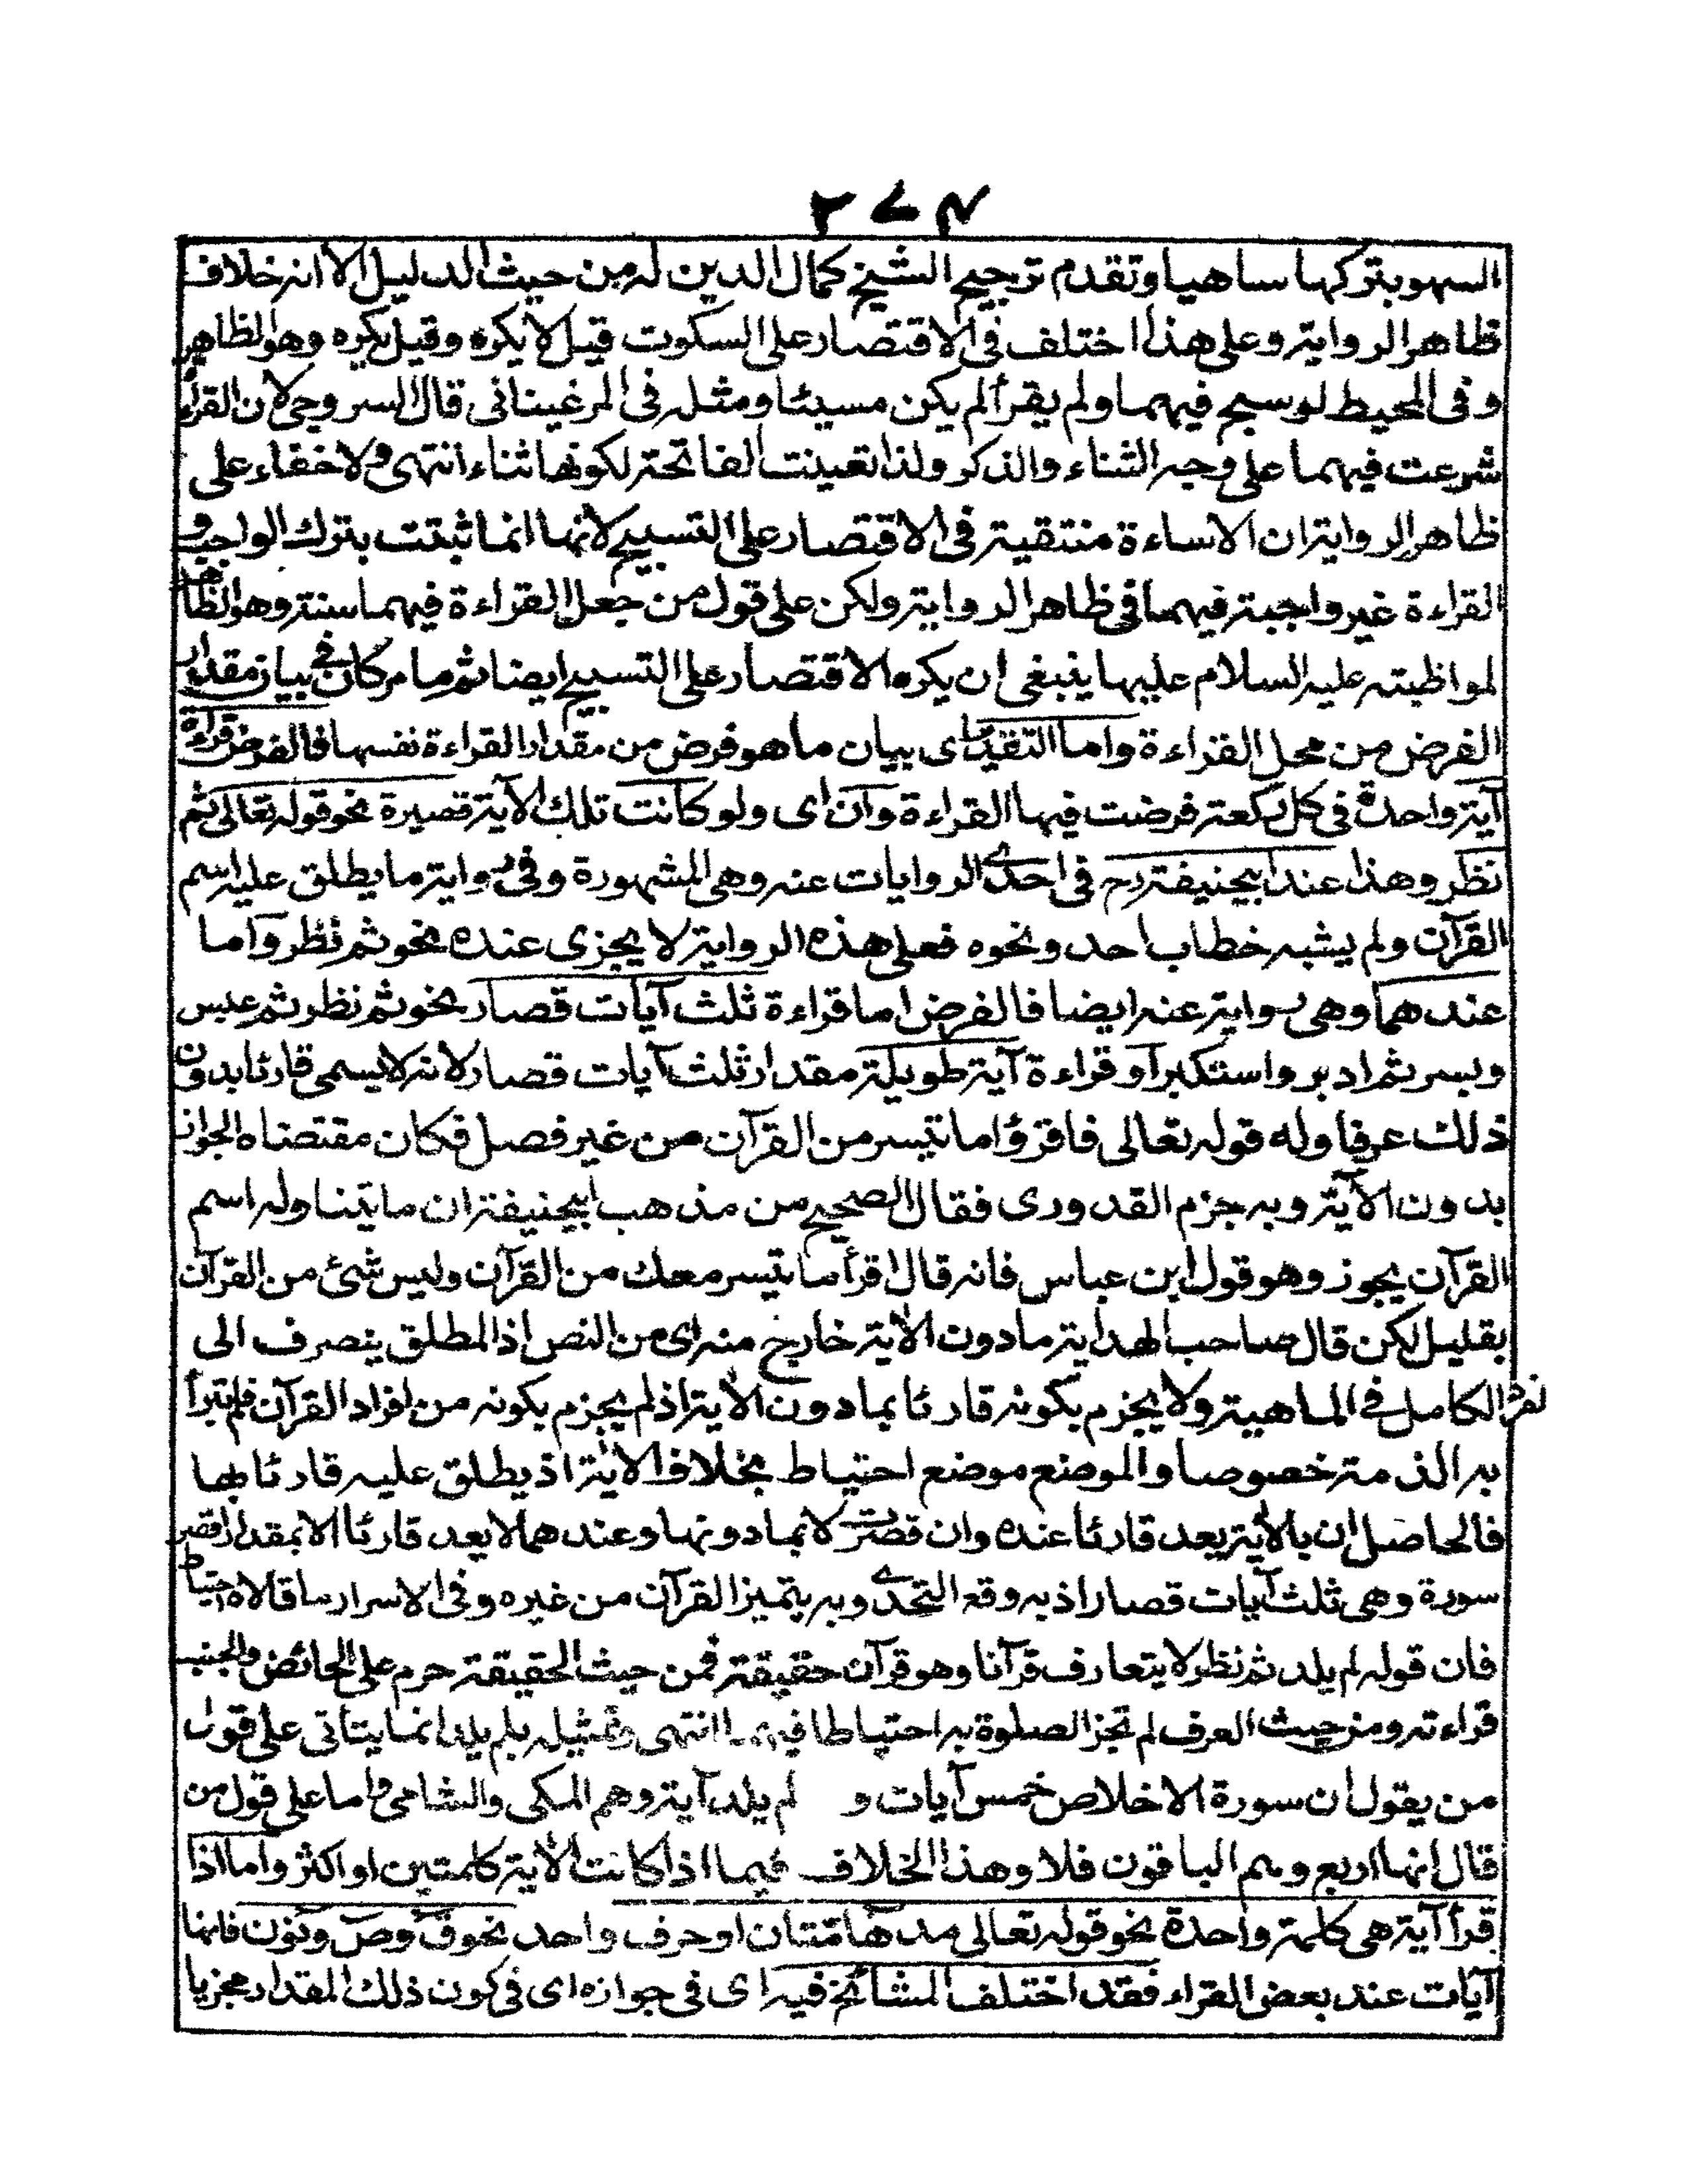 ٢٧٤
السهو بتركها ساهيا وتقدم ترجيح الشيخ كمال الدين له من حيث الدليل الا انه خلاف
ظاهر الرواية وعلى هذا اختلف فى الاقتصار على السكوت قيل لا يكره وقيل يكره وهو الظاهر
وفى المحيط لو سبح فيهما ولم يقرأ لم يكن مسيئا ومثله فى المرغينانى قال السروجى لان القراءة
شرعت فيهما على وجه الثناء والذكر ولذا تعينت الفاتحة لكونها ثناء انتهى ولا خفاء على
ظاهر الرواية ان الاساءة منتقية فى الاقتصار على التسبيح لانها انما ثبتت بترك الواجب و
القراءة غير واجبة فيهما فى ظاهر الرواية ولكن على قول من جعل القراءة فيهما سنة وهو الظاهر
لمواظبته عليه السلام عليها ينبغى ان يكره الاقتصار على التسبيح ايضا ثم ما مر كان فى بيان مقدار
الفرض من محل القراءة واما التقدير اى بيان ما هو فرض من مقدار القراءة نفسها فالفرض قراءة
آية واحدة فى كل ركعة فرضت فيها القراءة وان اى ولو كانت تلك الآية قصيرة نحو قوله تعالى ثم
نظر وهذا عند ابيحنيفة رح فى احدى الروايات عنه وهى المشهورة وفى رواية ما يطلق عليه اسم
القرآن ولم يشبه خطاب احد ونحوه فعلى هذه الرواية لا يجزى عنده نحو ثم نظر واما
عندهما وهى رواية عنه ايضا فالفرض اما قراءة ثلث آيات قصار نحو ثم نظر ثم عبس
وبسر ثم ادبر واستكبر او قراءة آية طويلة مقدار ثلث آيات قصار لانه لا يسمى قارئا بدون
ذلك عرفا وله قوله تعالى فاقرؤا ما تيسر من القرآن من غير فصل فكان مقتضاه الجواز
بدون الآية وبه جزم القدورى فقال الصحيح من مذهب ابيحنيفة ان ما يتناوله اسم
القرآن يجوز وهو قول ابن عباس فانه قال اقرأ ما تيسر معك من القرآن وليس شئ من القرآن
بقليل لكن قال صاحب الهداية ما دون الآية خارج منه اى من النص اذ المطلق ينصرف الى
الكامل فى الماهية ولا يجزم بكونه قارئا بما دون الآية اذ لم يجزم بكونه من افراد القرآن فلم تبرأ
به الذمة خصوصا والموضع موضع احتياط بخلاف الآية اذ يطلق عليه قارئا بها
فالحاصل ان بالآية يعد قارئا عنده وان قصرت لا بما دونها وعندهما لا يعد قارئا الا بمقدار اقصر
سورة وهى ثلث آيات قصار اذ به وقع التحدى وبه يتميز القرآن من غيره وفى الاسرار ما قالاه احتياط
فان قوله لم يلد ثم نظر لا يتعارف قرآنا وهو قرآن حقيقة فمن حيث الحقيقة حرم على الحائض والجنب
قراءته ومن حيث العرف لم تجز الصلوة به احتياطا فيهما انتهى وتمثيله بلم يلد انما يتأتى على قول
من يقول ان سورة الاخلاص خمس آيات و لم يلد آية وهم المكى والشامى واما على قول من
قال انها اربع وهم الباقون فلا وهذا الخلاف فيما اذا كانت الآية كلمتين او اكثر واما اذا
قرأ آية هى كلمة واحدة نحو قوله تعالى مدهامتان او حرف واحد نحو ق وص ونون فانها
آيات عند بعض القراء فقد اختلف المشائخ فيه اى فى جوازه اى فى كون ذلك المقدار مجزيا